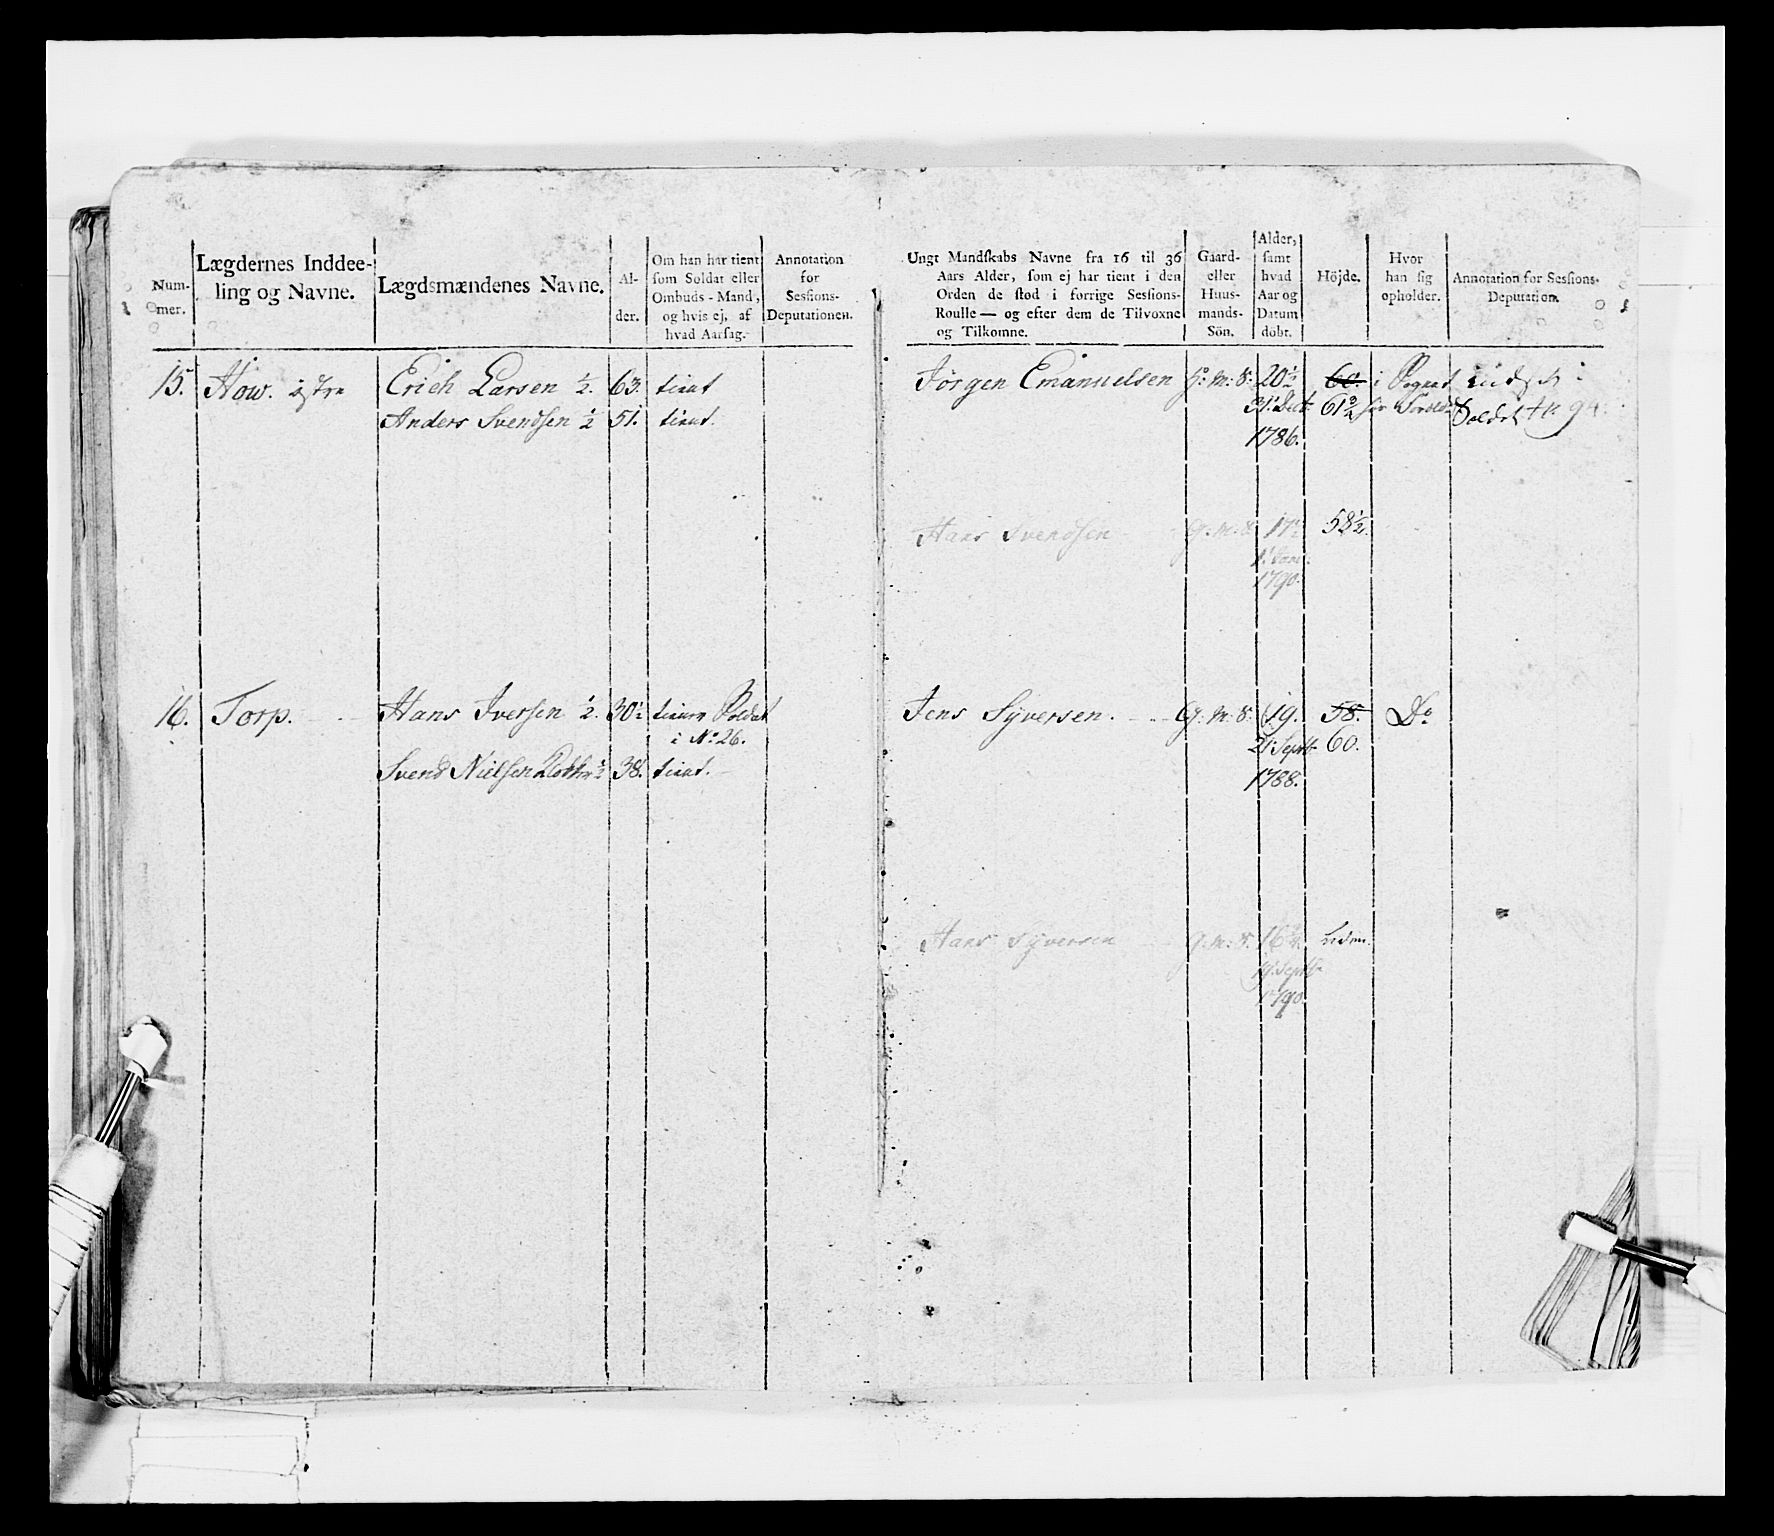 Num-
mer.
Lægdernes Inddee-
ling og Navne.
Lægdsmændenes Navne.
Al-
der.
Om han har tient
som Soldat eller
Ombuds-Mand,
og hvis ej, af
hvad Aarsag.
Annotation
for
Sessions-
Deputationen.
Ungt Mandskabs Navne fra 16 til 36
Aars Alder, som ej har tient i den
Orden de stod i forrige Sessions-
Roulle — og efter dem de Tilvoxne
og Tilkomne.
Gaard-
eller
Huus-
mands-
Sön.
Alder,
samt
hvad
Aar og
Datum
döbt.
Höjde.
Hvor
han sig
opholder.
Annotation for Sessions-
Deputation.
15. How. östre Erich Larsen ½. 63. tient
Anders Svendsen ½ 51. tient.
Jörgen Emanuelsen G: M: S: 20½ 60. i Sognet
31: Dect. 61¾
1786. Soldat
Hans Svendsen G: M: S: 17½ 58½.
1: Janr.
1790.
16. Torp. Hans Iversen ½. 30½ tiener Soldat
i No 26.
Svend Nielsen ½ 38. tient.
Jens Syversen. G: M: S: 19. 58. Do
21: Septb. 60.
1788.
Hans Syversen G: M: S: 16¾ uden
19: Septb.
1790